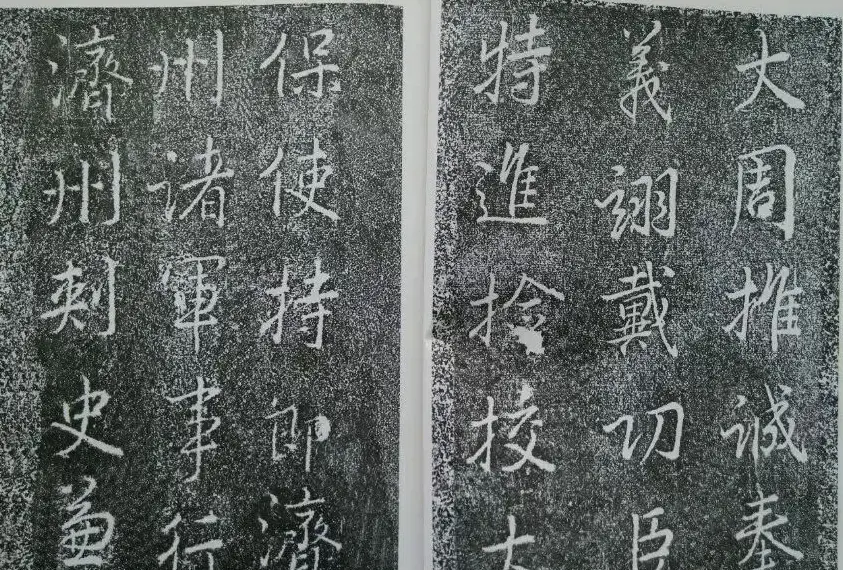 大周推誠奉
義翊戴功臣
特進撿挍太
保使持節濟
州諸軍事行
濟州刺史兼